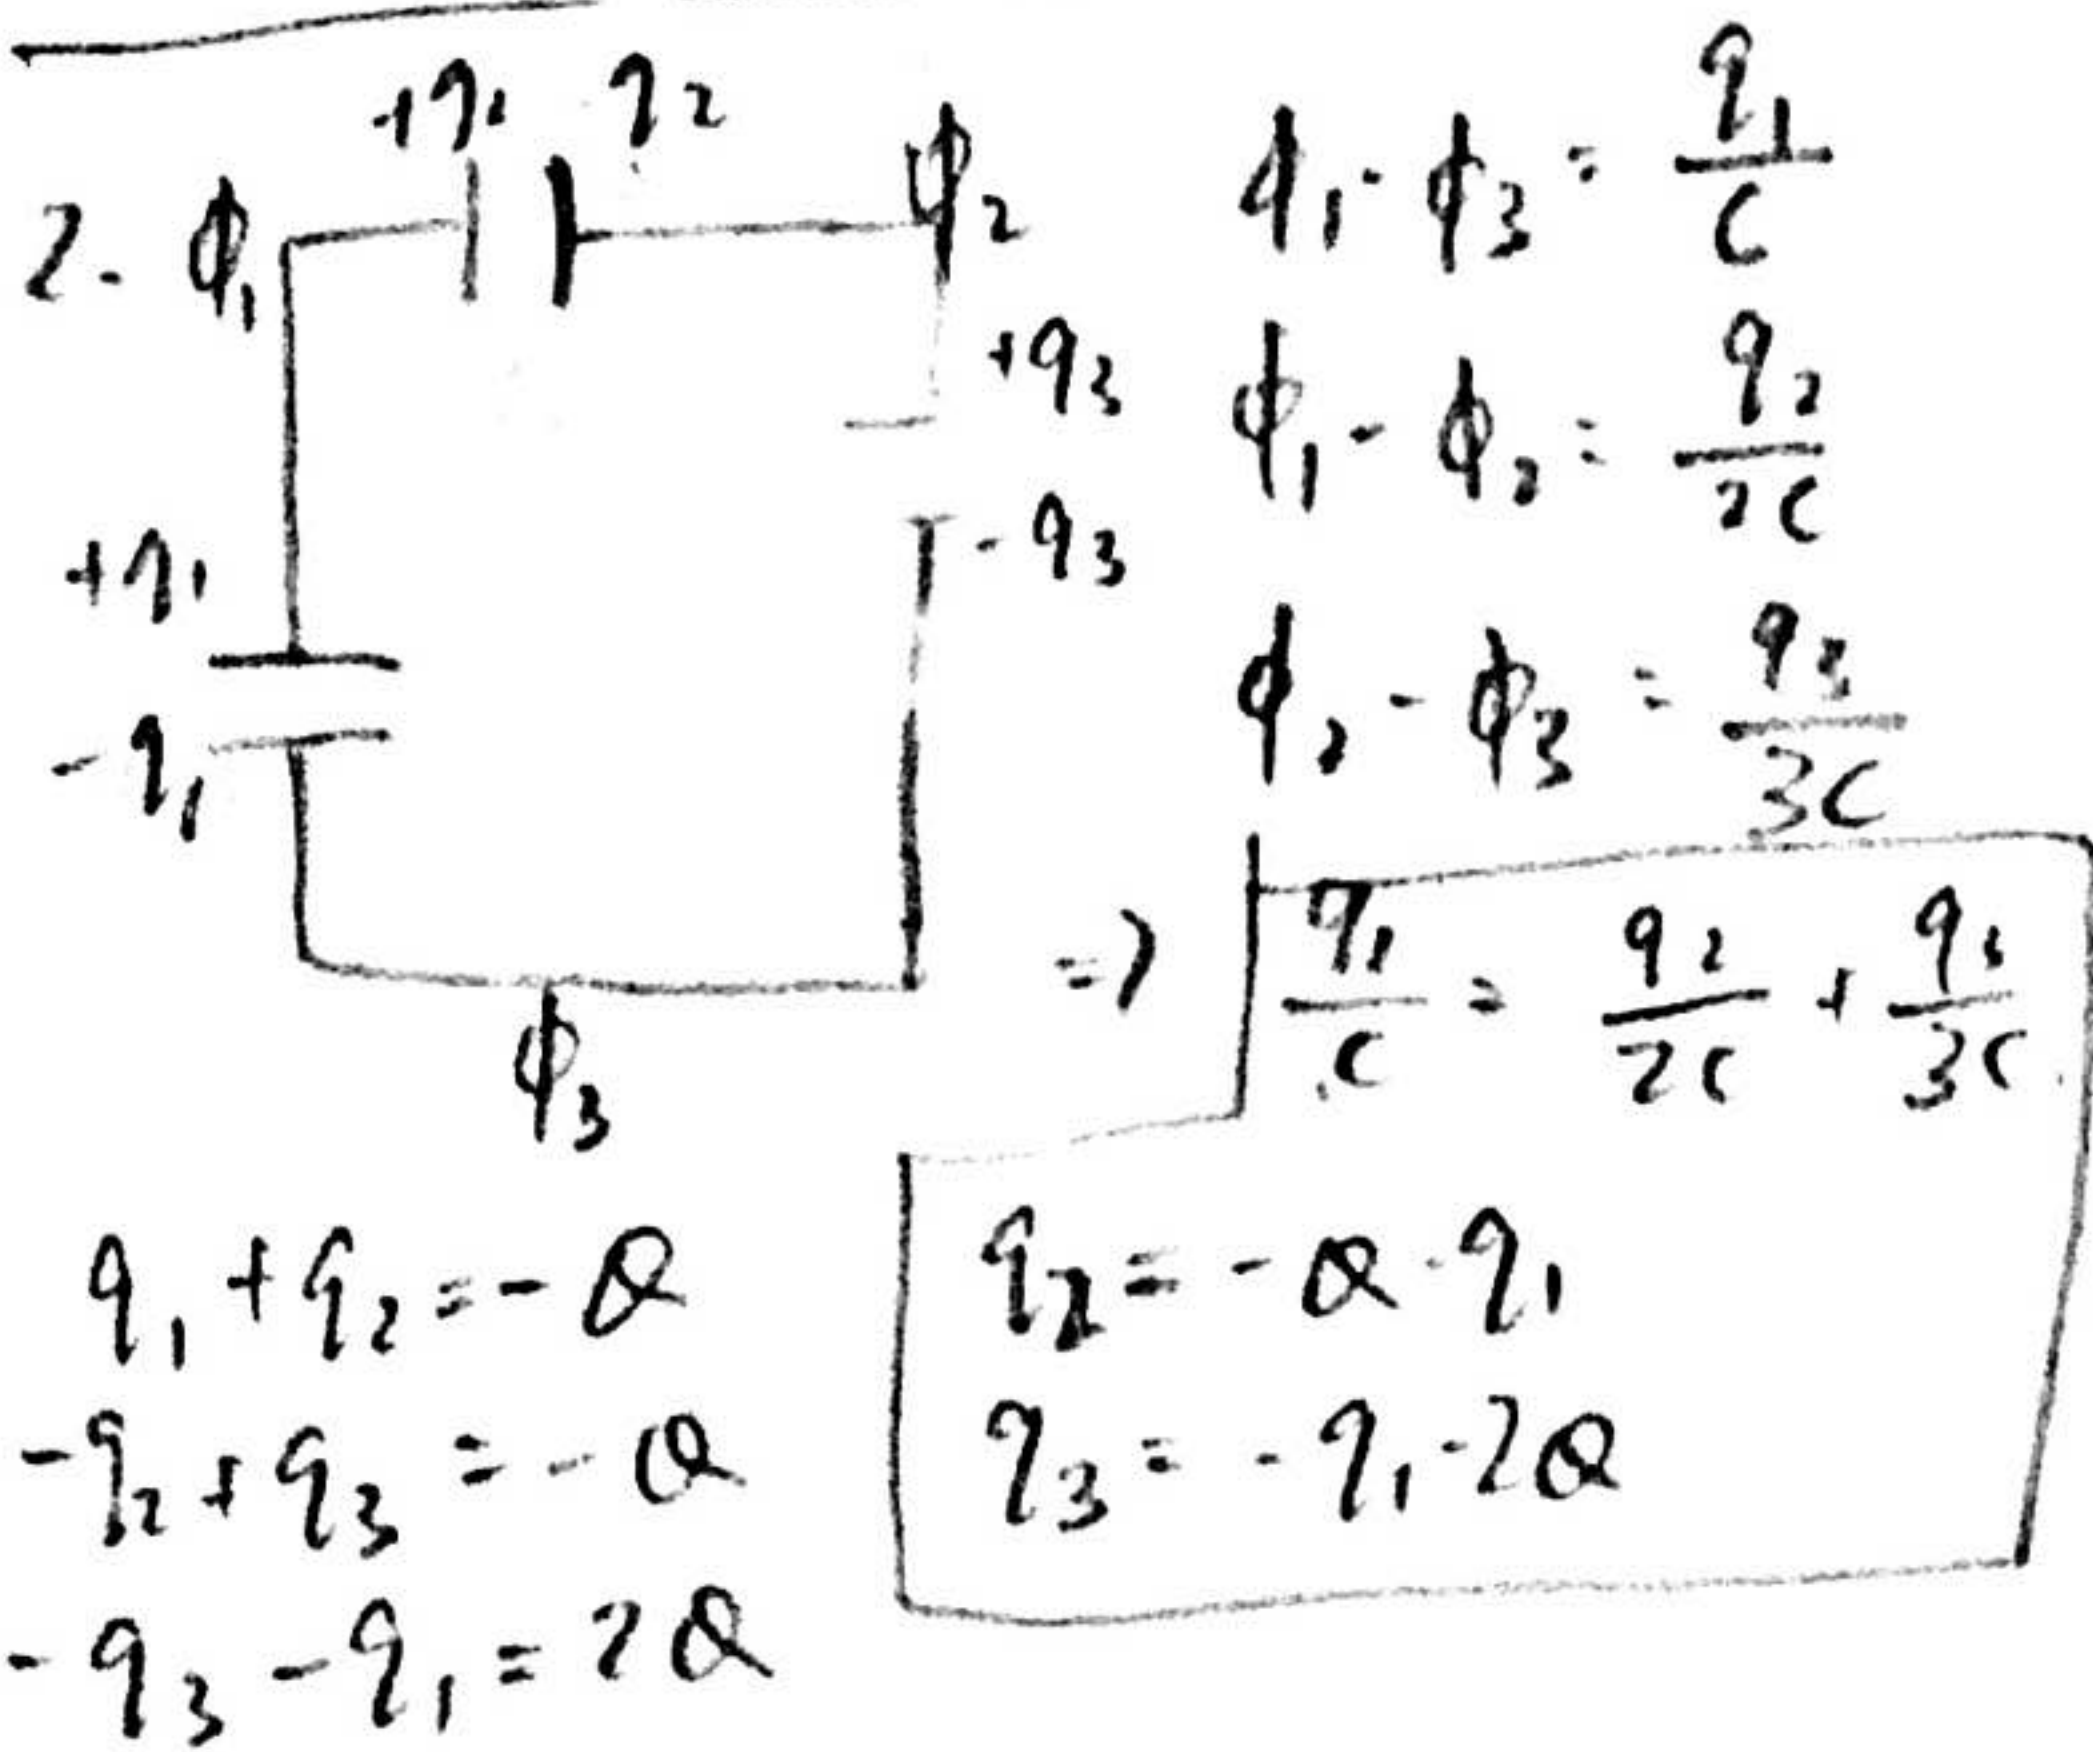 2. ϕ₁
+q₁ q₂
ϕ₂
+q₃
-q₃
+q₁
-q₁
ϕ₃
ϕ₁ - ϕ₃ = q₁/C
ϕ₁ - ϕ₂ = q₂/2C
ϕ₂ - ϕ₃ = q₃/3C
=> q₁/C = q₂/2C + q₃/3C
q₁ + q₂ = -Q
-q₂ + q₃ = -Q
-q₃ - q₁ = 2Q
q₂ = -Q - q₁
q₃ = -q₁ - 2Q